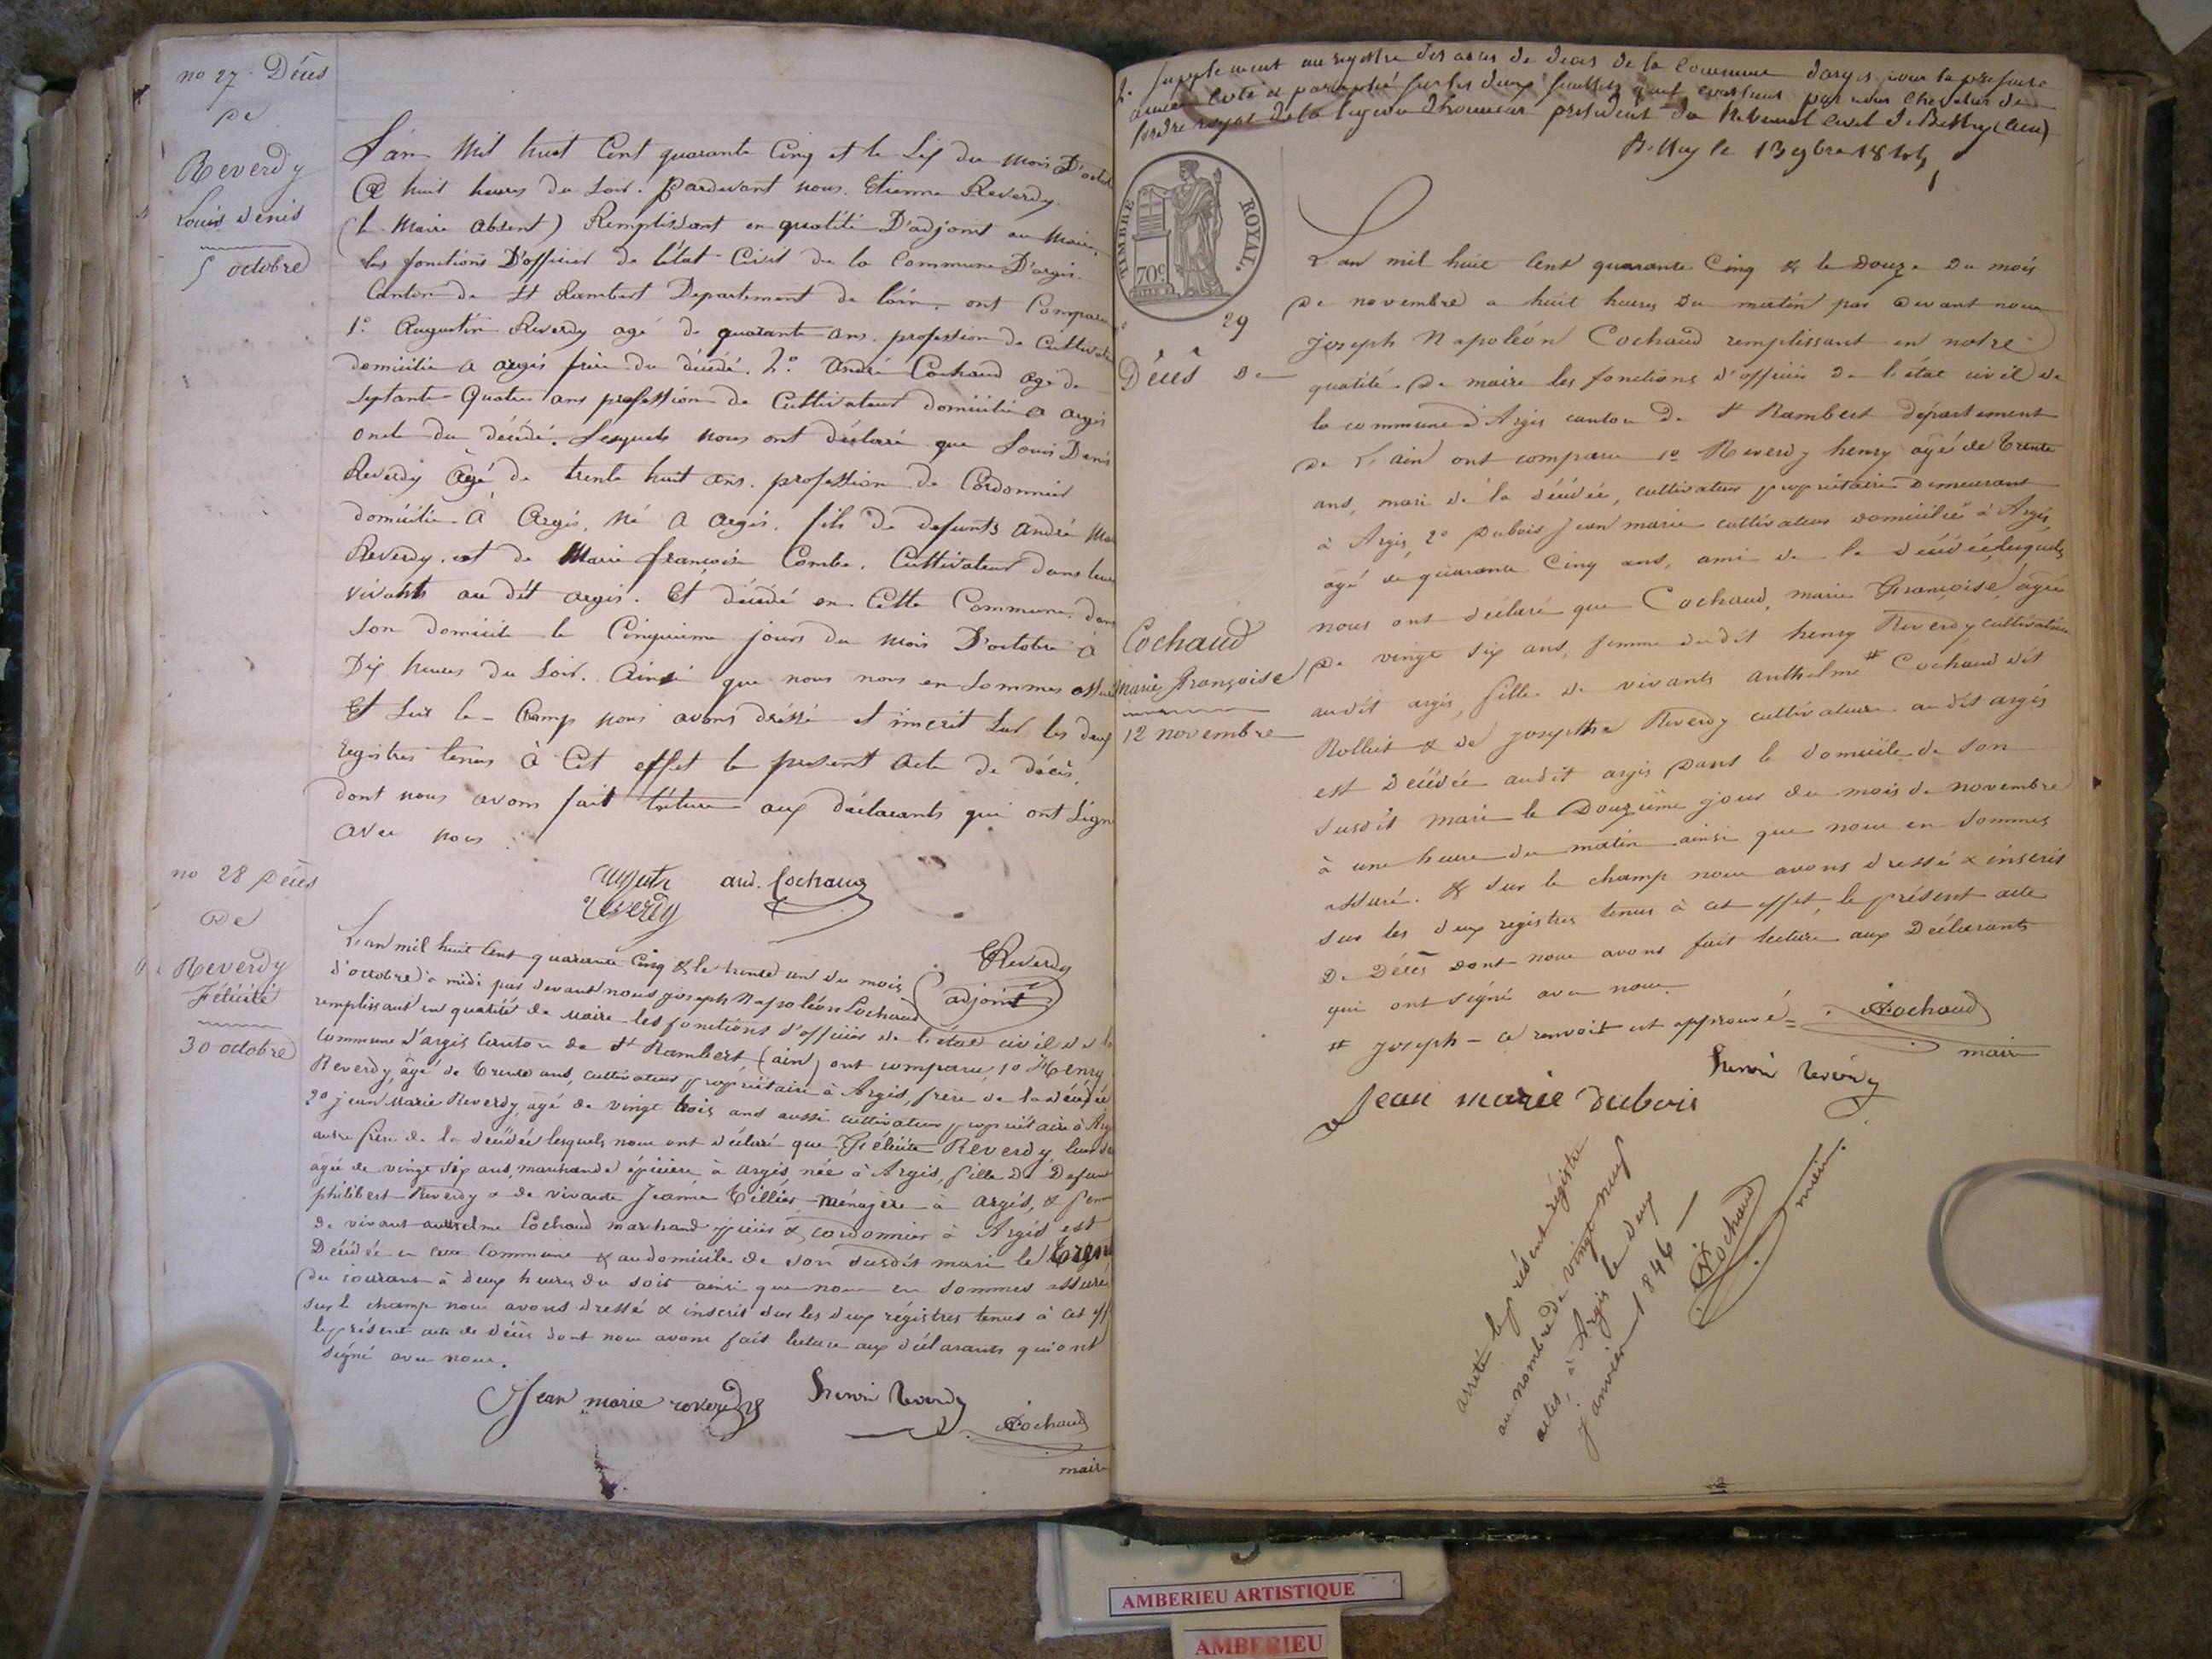 no 27 Décès
de
Reverdy
Louis denis
5 octobre
L'an Mil huit Cent quarante Cinq et le Six du mois D'octob
a huit heures du Soir. pardevant nous. Etienne Reverdy.
(le Maire absent) Remplissant en qualité D'adjoint au Maire,
les fonctions D'officier de l'état Civil de la Commune D'argis.
Canton de St Rambert Departement de l'ain, ont Comparu
1° Augustin Reverdy agé de quarante ans. profession de Cultivateu
domicilié a argis frère du décédé. 2° André Cochaud agé de
Septante Quatre ans profession de Cultivateur domicilié a argis
oncle du décédé. Lesquels nous ont déclaré que Louis Denis
Reverdy Agé de trente huit ans. profession de Cordonnier
domicilié à Argis, né a argis. fils de defunts André
Reverdy. et de Marie françoise Combe. Cultivateur dans leur
vivants au dit argis. Et décédé en Cette Commune. dans
Son domicile le Cinquieme jours du mois D'octobre à
Dix heures du Soir. Ainsi que nous nous en Sommes assuré
Et Sur le-Champ nous avons dréssé et inscrit Sur les deux
registres tenus à Cet effet le présent acte de décès,
dont nous avons fait lecture aux déclarants qui ont Signé
avec nous.
reverdy
and. Cochaud
EReverdy
adjoint
no 28 Décès
de
Reverdy
Félicité
30 octobre
L'an mil huit Cent quarante Cinq & le trente un du mois
d'octobre à midi par devant nous joseph Napoléon Cochaud
remplissant en qualité de Maire les fonctions d'officier de l'état civil de la
Commune d'argis Canton de St Rambert (ain) ont comparu, 1° Henry
Reverdy, âgé de trente ans, cultivateur propriétaire à Argis, frère de la décédée
2° jean Marie Reverdy, âgé de vingt trois ans aussi cultivateur propriétaire à Arg
autre frère de la décédée lesquels nous ont déclaré que Félicité Reverdy, leur
âgée de vingt six ans, marchande épicière à argis, née à Argis, fille de Defunt
philibert Reverdy & de vivante Jeanne Tillier Ménagère à Argis, & femme
de vivant Cochaud marchand épicier & cordonnier à Argis est
Décédée en cette Commune & au domicile de son susdit mari le trente
du courant à deux heures du soir ainsi que nous en sommes assuré,
sur le champ nous avons dressé & inscrit sur les deux régistres tenus à cet eff
le présent acte de décès dont nous avons fait lecture aux déclarants qui ont
signé avec nous.
Jean marie reverdy
henri Reverdy
NCochaud
maire
Supplement au registre des actes de deces de la Commune dargis pour la presente
année Coté et paraphé sur les deux feuillets par nous Chevalier de
lordre royal de la legion dhonneur president du tribunal civil de Belley (ain)
Belley le 13 9bre 1845
TIMBRE ROYAL.
70c
29
Décès de
Cochaud
marie françoise
12 novembre
L'an mil huit Cent quarante Cinq & le Douze Du mois
De novembre a huit heures du matin par devant nous
joseph Napoléon Cochaud remplissant en notre
qualité de maire les fonctions d'officier de l'état civil de
la commune d'Argis canton de St Rambert département
de L'ain ont comparu 1° Reverdy henry âgé de trente
ans, mari de la décédée, cultivateur propriétaire Demeurant
à Argis, 2° Dubois jean marie cultivateur domicilié à Argis,
âgé de quarante Cinq ans, ami de la décédée, lesquels
nous ont déclaré que Cochaud, marie Françoise, âgée
De vingt six ans, femme dudit henry Reverdy cultivateur
audit argis, fille de vivants anthelme # Cochaud dit
Rollet & de josephte Reverdy cultivateurs audit argis
est Décédée audit argis Dans le domicile de son
susdit mari le Douzième jour du mois de novembre
à une heure du matin ainsi que nous en sommes
assuré. & sur le champ nous avons dressé & inscrit
sur les deux registres tenus à cet effet, le présent acte
De Décès dont nous avons fait lecture aux Déclarants
qui ont signé avec nous.
# joseph - ce renvoit est approuvé =
NCochaud
maire
henri Reverdy
Jean marie dubois
arrêté le présent régistre
au nombre de vingt neuf
actes, à Argis le deux
janvier 1846 -
NCochaud
maire.
AMBERIEU ARTISTIQUE
AMBERIEU